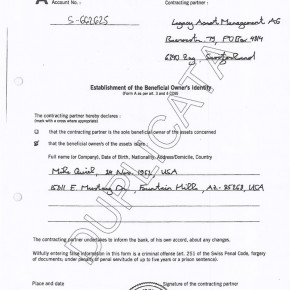 A Account No. :
Contracting partner :
S-662625
Legacy Asset Management AG
73, PO Box
6340 Zug, Switzerland
Establishment of the Beneficial Owner's Identity
(Form A as per art. 3 and 4 CDB)
The contracting partner hereby declares :
(mark with a cross where appropriate)
that the contracting partner is the sole beneficial owner of the assets concerned
that the beneficial owner/s of the assets is/are :
Full name (or Company), Date of Birth, Nationality, Address/Domicile, Country
Nov. USA
E. Mustang Dr, Fountain Hills, AZ- 85268, USA
DUPLICATA
The contracting partner undertakes to inform the bank, of his own accord, about any changes.
Wilfully entering false information in this form is a criminal offense (art. 251 of the Swiss Penal Code, forgery
of documents, under penalty of penal servitude of up to five years or a prison sentence).
Place and date